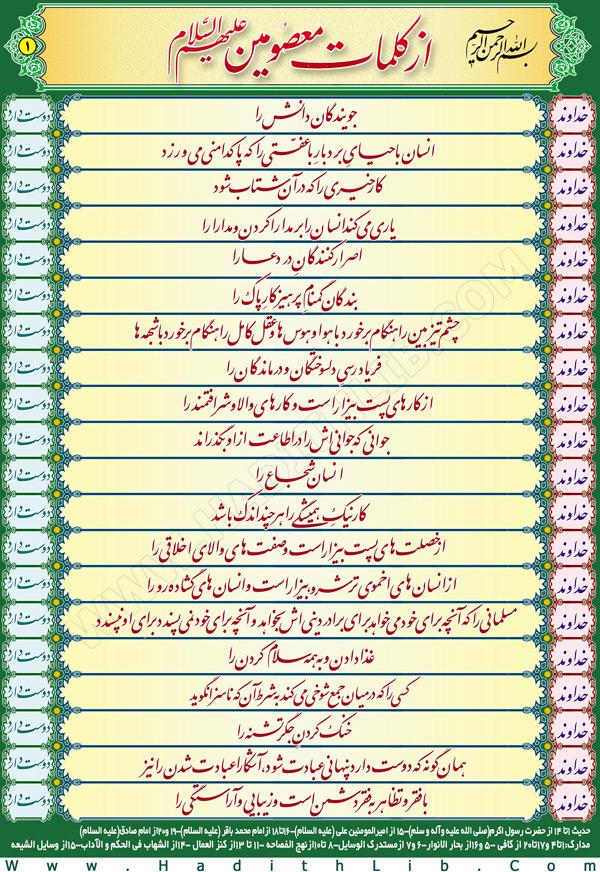 بسم الله الرحمن الرحیم
از کلمات معصومین علیهم السلام
۱
خداوند جویندگان دانش را دوست دارد
خداوند انسان با حیای بردبارِ با عفّتی را که پاکدامنی می ورزد دوست دارد
خداوند کار خیری را که در آن شتاب شود دوست دارد
خداوند یاری می کند انسان را بر مدارا کردن و مدارا را دوست دارد
خداوند اصرار کنندگان در دعا را دوست دارد
خداوند بندگان گمنامِ پرهیزکار پاک را دوست دارد
خداوند چشم تیزبین را هنگام برخورد با هوا و هوس ها و عقل کامل را هنگام برخورد با شبهه ها دوست دارد
خداوند فریادرسیِ دلسوختگان و درماندگان را دوست دارد
خداوند از کارهای پست بیزار است و کارهای والا و شرافتمند را دوست دارد
خداوند جوانی که جوانی اش را در اطاعت از او بگذراند دوست دارد
خداوند انسان شجاع را دوست دارد
خداوند کار نیکِ همیشگی را هر چند اندک باشد دوست دارد
خداوند از خصلت های پست بیزار است و صفت های والای اخلاقی را دوست دارد
خداوند از انسان های اخموی ترشرو بیزار است و انسان های گشاده رو را دوست دارد
خداوند مسلمانی را که آنچه برای خود می خواهد برای برادر دینی اش بخواهد و آنچه برای خود نمی پسندد برای او نپسندد دوست دارد
خداوند غذا دادن و به همه سلام کردن را دوست دارد
خداوند کسی را که در میان جمع شوخی می کند به شرط آن که ناسزا نگوید دوست دارد
خداوند خنک کردنِ جگر تشنه را دوست دارد
خداوند همان گونه که دوست دارد پنهانی عبادت شود، آشکارا عبادت شدن را نیز دوست دارد
خداوند با فقر و تظاهر به فقر دشمن است و زیبایی و آراستگی را دوست دارد
حدیث ۱ تا ۱۴ از حضرت رسول اکرم (صلی الله علیه و آله و سلم) -۱۵ از امیرالمومنین علی (علیه السلام) -۱۶ تا ۱۸ از امام محمد باقر (علیه السلام) -۱۹ و ۲۰ از امام صادق (علیه السلام)
مدارک: ۱ تا ۴ و ۱۷ تا ۲۰ از کافی - ۵ و ۱۶ از بحار الانوار - ۶ و ۷ از مستدرک الوسایل - ۸ تا ۱۰ از نهج الفصاحه - ۱۱ تا ۱۳ از کنز العمال - ۱۴ از الشهاب فی الحکم و الآداب - ۱۵ از وسایل الشیعه
www.HadithLib.Com
WWW.HADITHLIB.COM